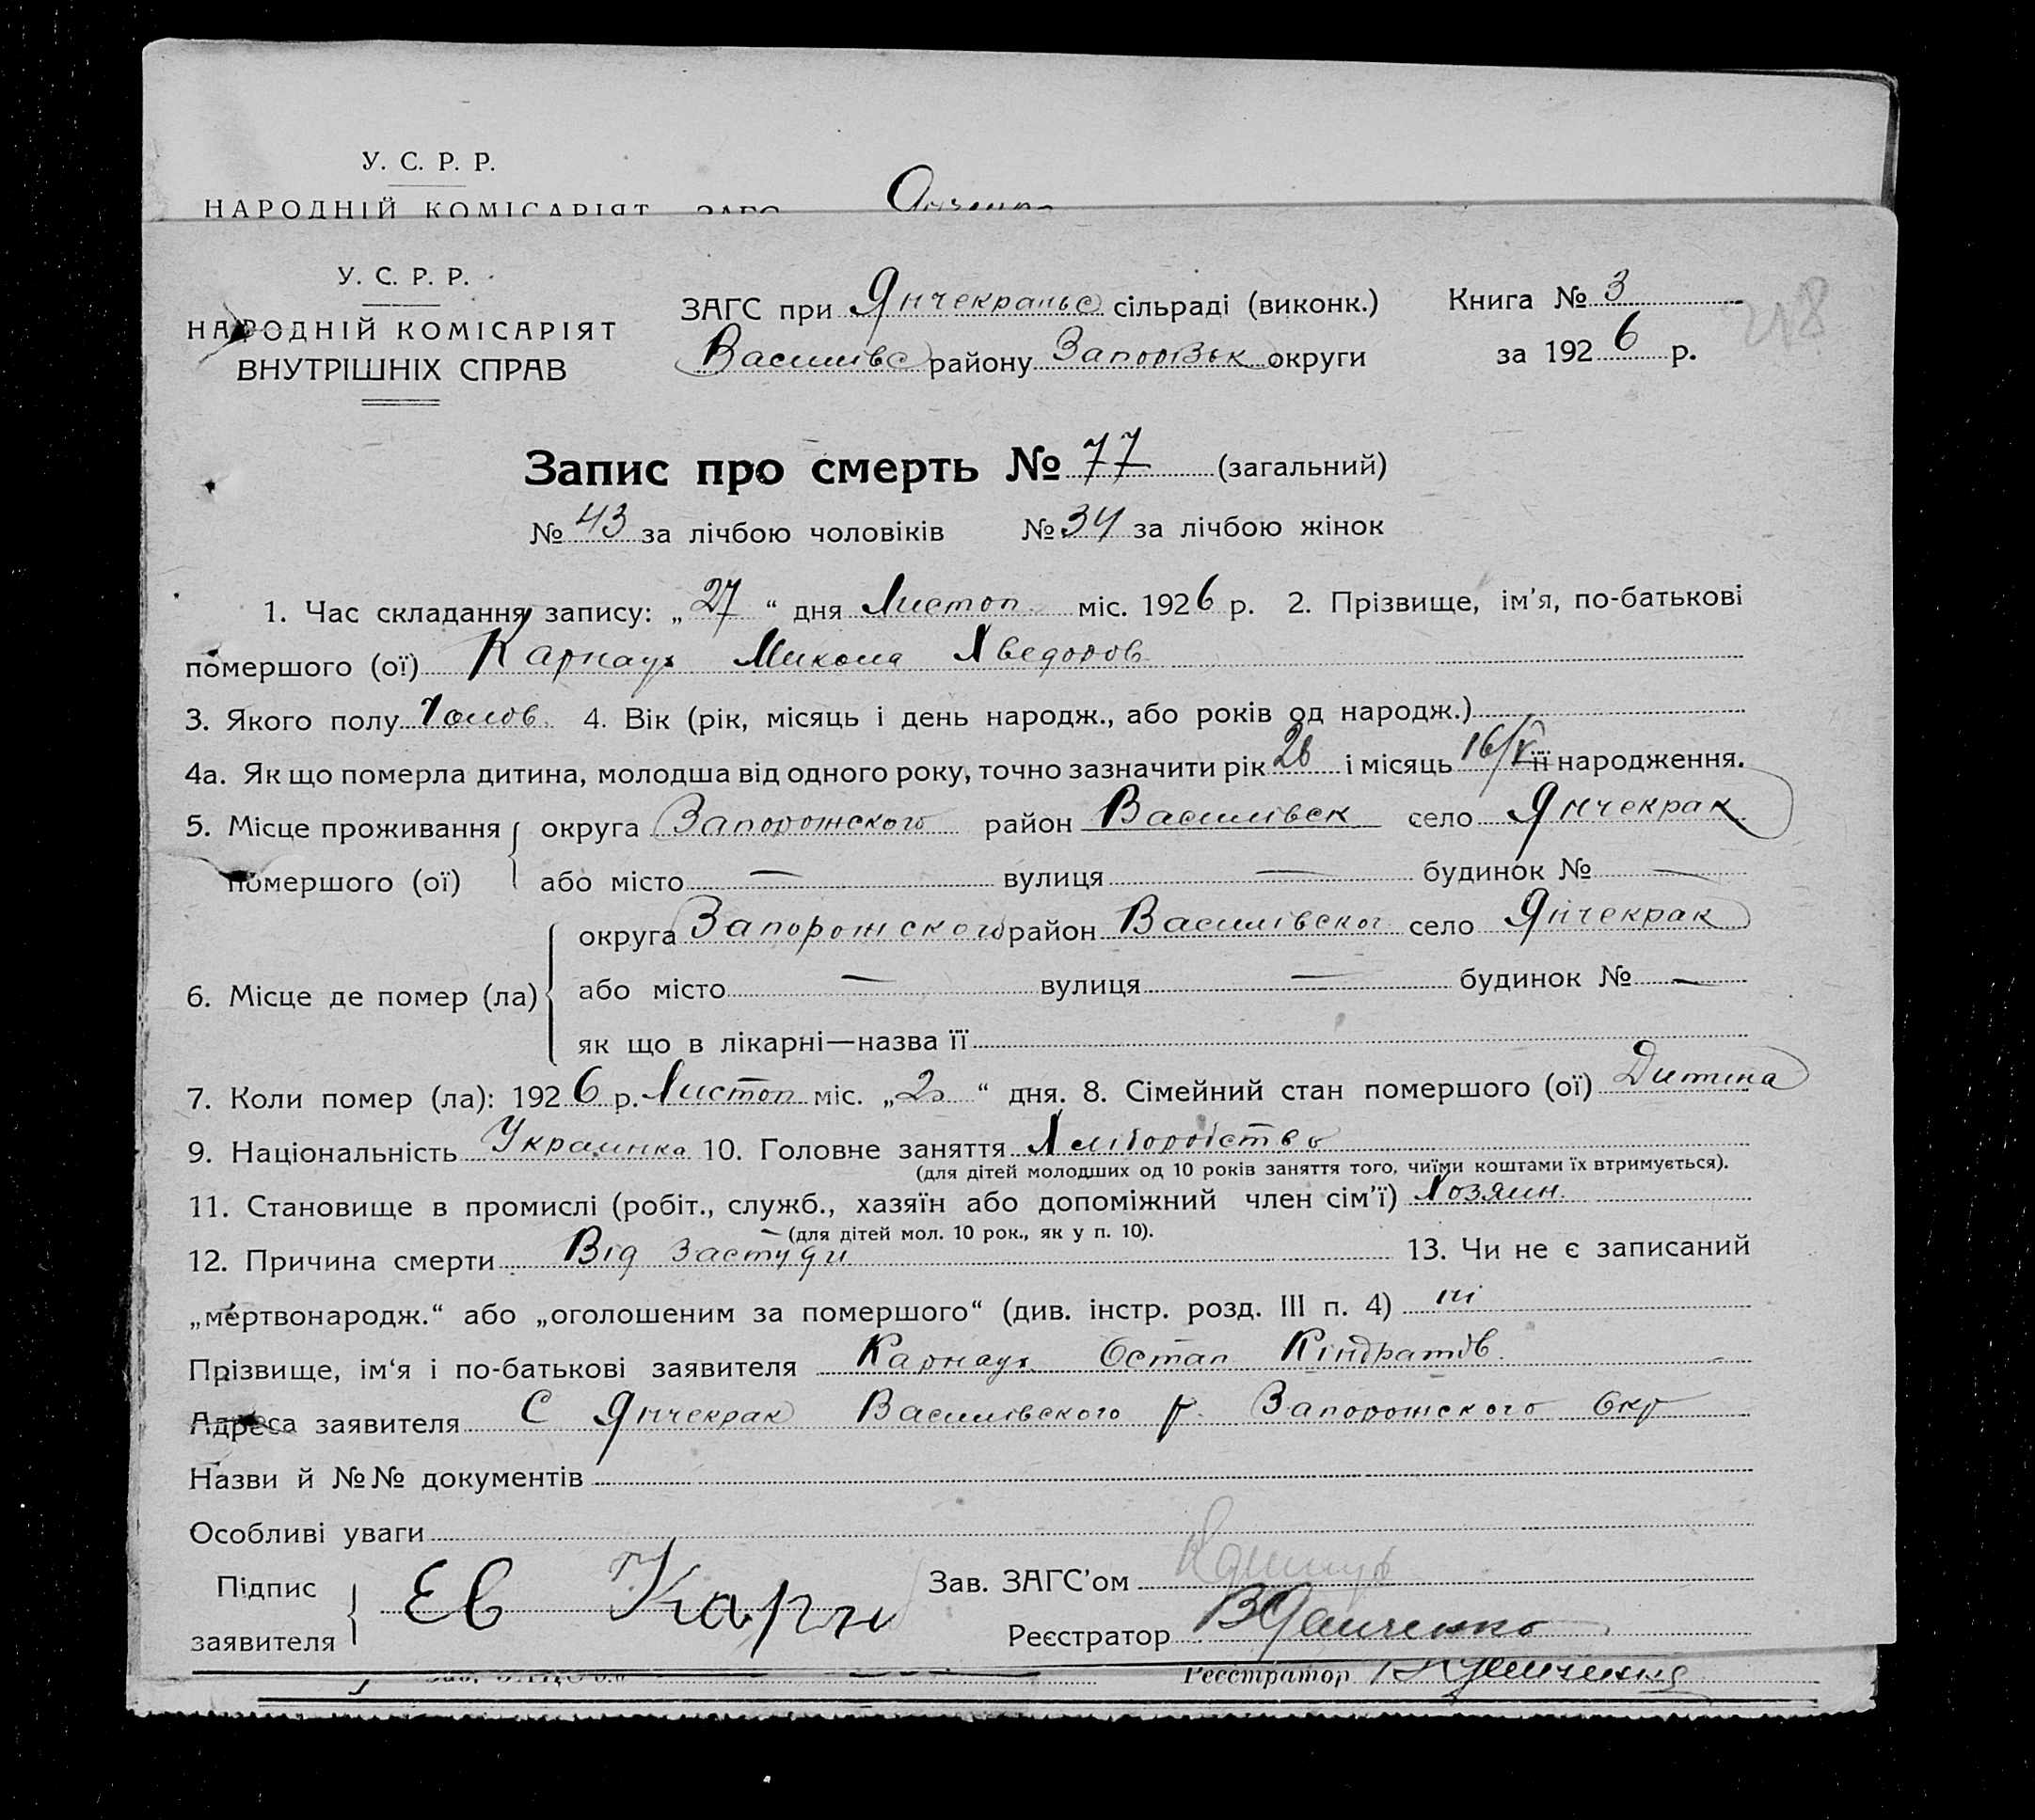 У. С. Р. Р.
НАРОДНІЙ КОМІСАРІЯТ ЗАГС
У. С. Р. Р.
НАРОДНІЙ КОМІСАРІЯТ
ВНУТРІШНІХ СПРАВ
ЗАГС при Янчекрацьс сільраді (виконк.)
Василівс району Запорізьк округи
Книга № 3
за 1926 р.
218
Запис про смерть № 77 (загальний)
№ 43 за лічбою чоловіків № 34 за лічбою жінок
1. Час складання запису: „27“ дня Листоп міс. 1926 р. 2. Прізвище, ім'я, по-батькові
помершого (ої) Карнаух Микола Хведоров
3. Якого полу Чолов. 4. Вік (рік, місяць і день народж., або років од народж.)
4а. Як що померла дитина, молодша від одного року, точно зазначити рік 26 і місяць 16/V її народження.
5. Місце проживання помершого (ої) округа Запорожского район Василівск село Янчекрак
або місто — вулиця — будинок № —
6. Місце де помер (ла) округа Запорожского район Василівског село Янчекрак
або місто — вулиця — будинок № —
як що в лікарні—назва її
7. Коли помер (ла): 1926 р. Листоп міс. „ “ дня. 8. Сімейний стан помершого (ої) Дитина
9. Національність Украинка 10. Головне заняття Хліборобство
(для дітей молодших од 10 років заняття того, чиїми коштами їх втримується).
11. Становище в промислі (робіт., служб., хазяїн або допоміжний член сім'ї) Хозяин.
(для дітей мол. 10 рок., як у п. 10).
12. Причина смерти Від застуди 13. Чи не є записаний
„мертвонародж.“ або „оголошеним за помершого“ (див. інстр. розд. III п. 4) ні
Прізвище, ім'я і по-батькові заявителя Карнаух Остап Кіндратов.
Адреса заявителя С Янчекрак Василівского р. Запорожского окр
Назви й №№ документів
Особливі уваги
Підпис заявителя Ев Карн
Зав. ЗАГС'ом
Реєстратор
Реєстратор